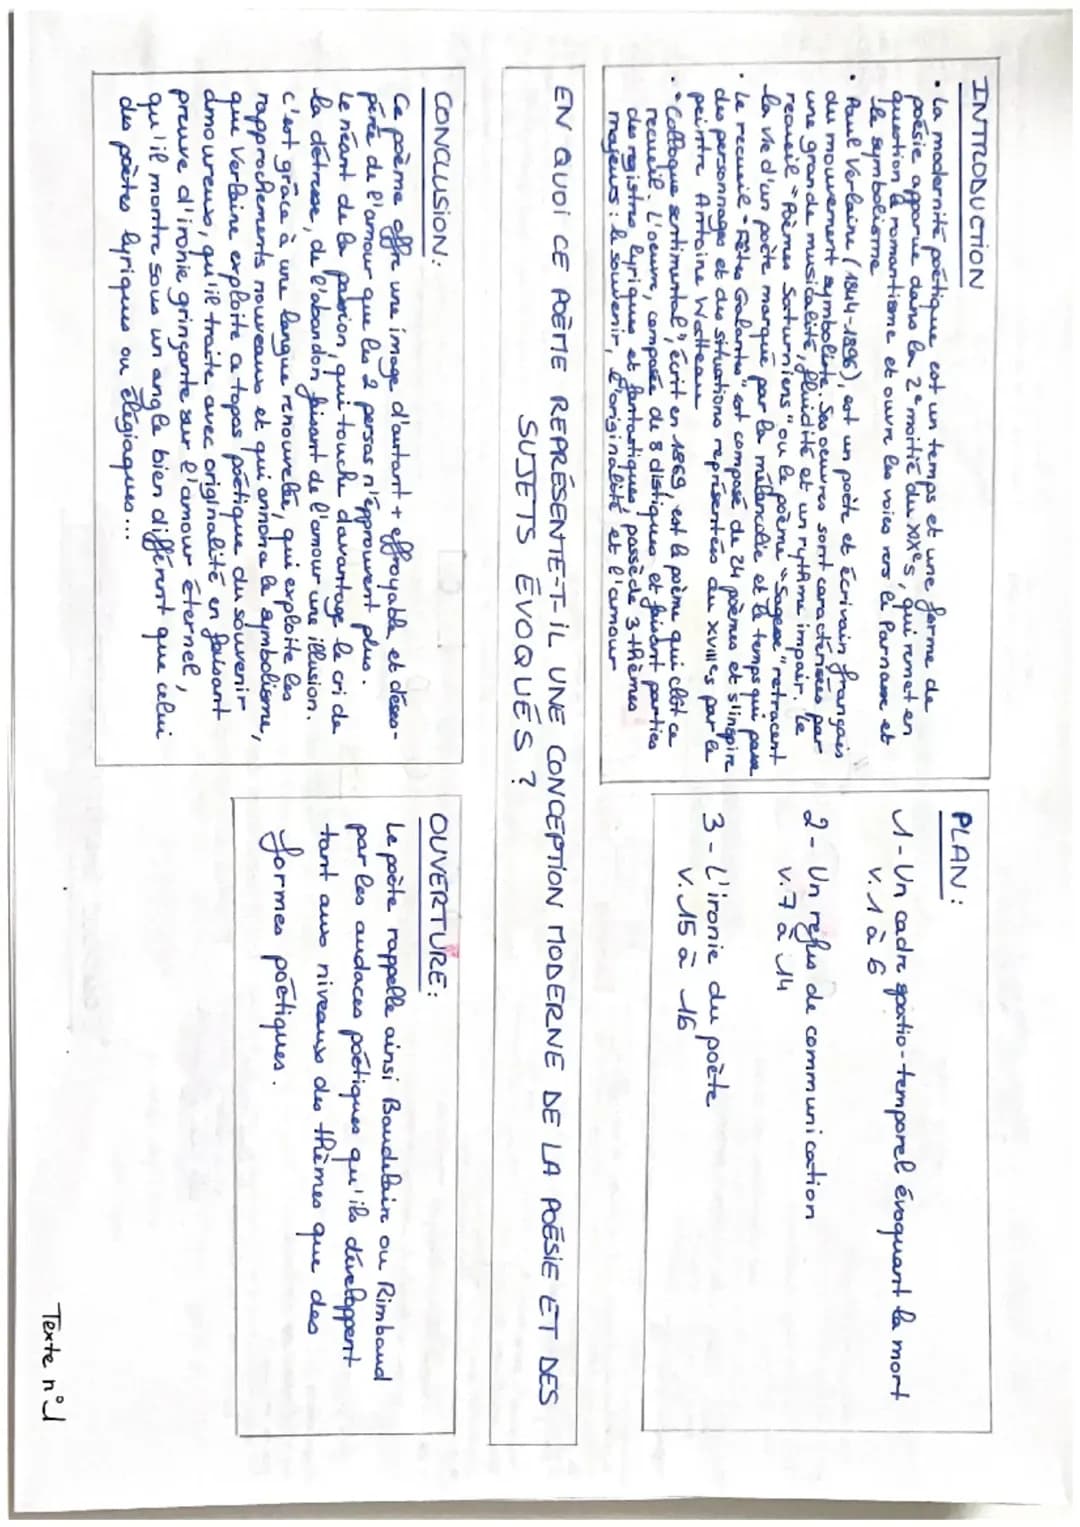 INTRODUCTION
• La modernité poétique est un temps et une forme de
poésie apparue dans la 2e moitié du XIXes, qui remet en
question le romantisme et ouvre les voies vers le Parnasse et
le symbolisme
• Paul Verlaine (1844-1896) est un poète et écrivain français
du mouvement symboliste. Ses oeuvres sont caractérisées par
une grande musicalité, fluidité et un rythme impair. Le
recueil "Poèmes Saturniens" ou le poème "Sagesse" retracent
la vie d'un poète marqué par la mélancolie et le temps qui passe
• Le recueil "Fêtes Galantes" est composé de 24 poèmes et s'inspire
des personnages et des situations représentées au XVIIIes par le
peintre Antoine Watteau
• "Colloque sentimental", écrit en 1869, est le poème qui clôt ce
recueil. L'oeuvre, composée de 8 distiques et faisant parties
des registres lyriques et fantastiques, possède 3 thèmes
majeurs : le souvenir, l'originalité et l'amour
PLAN :
1 - Un cadre spatio-temporel évoquant la mort
v. 1 à 6
2 - Un refus de communication
v. 7 à 14
3 - L'ironie du poète
v. 15 à 16
EN QUOI CE POÈME REPRÉSENTE-T-IL UNE CONCEPTION MODERNE DE LA POÉSIE ET DES
SUJETS ÉVOQUÉS ?
CONCLUSION :
Ce poème offre une image d'autant + effroyable et déses-
pérée de l'amour que les 2 persos n'éprouvent plus.
Le néant de la passion, qui touche davantage le cri de
la détresse, de l'abandon faisant de l'amour une illusion.
C'est grâce à une langue renouvelée, qui exploite les
rapprochements nouveaux et qui annona le symbolisme,
que Verlaine exploite ce topos poétique du souvenir
amoureux, qu'il traite avec originalité en faisant
preuve d'ironie grinçante sur l'amour éternel,
qu'il montre sous un angle bien différent que celui
des poètes lyriques ou élégiaques...
OUVERTURE :
Le poète rappelle ainsi Baudelaire ou Rimbaud
par les audaces poétiques qu'ils développent
tant aux niveaux des thèmes que des
formes poétiques.
Texte n°1